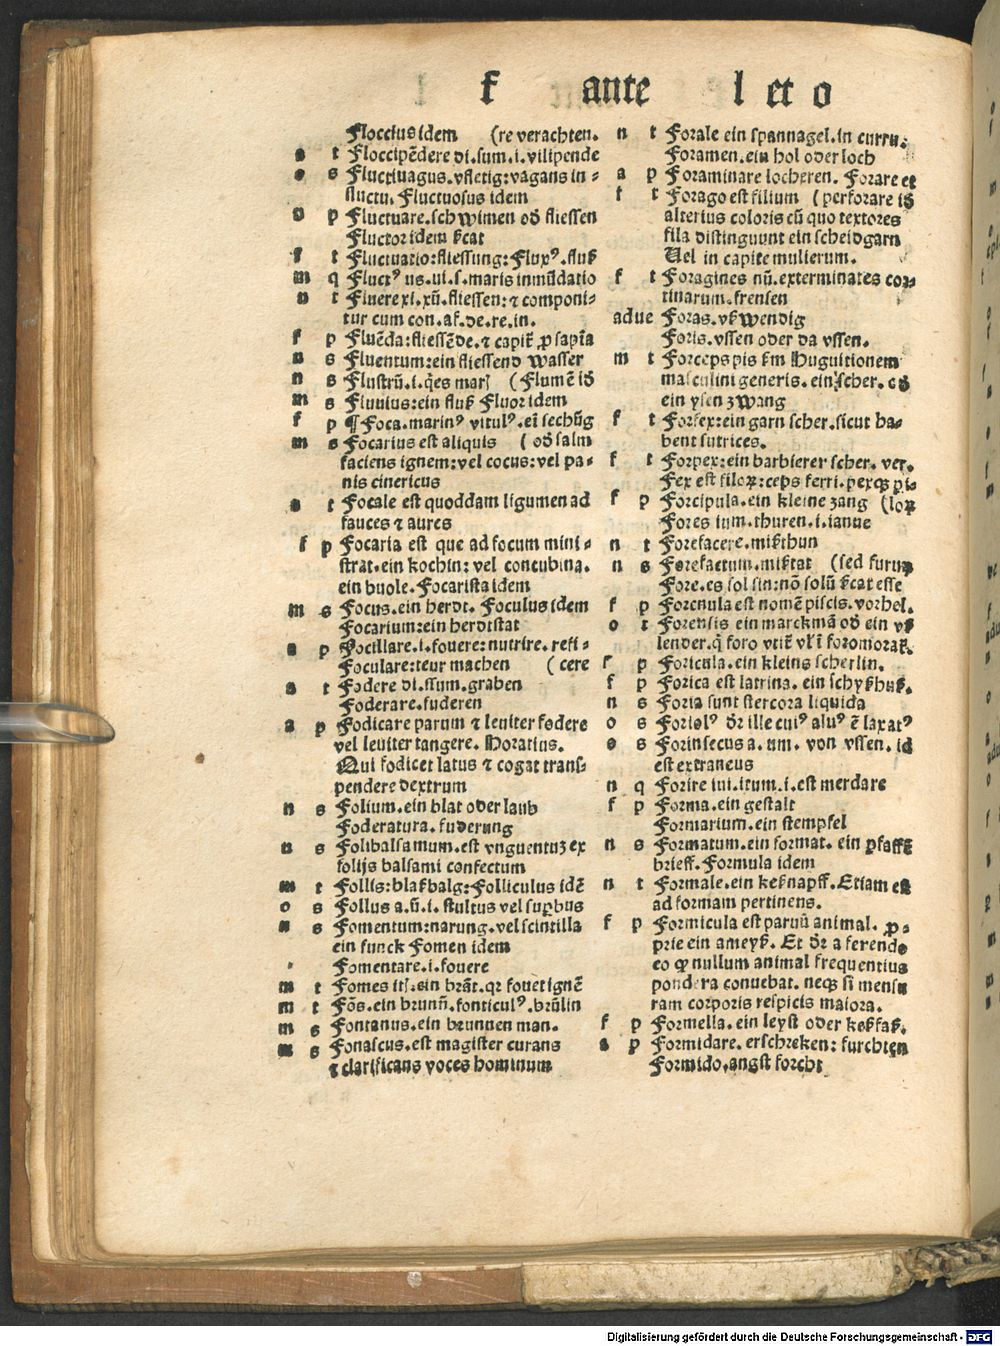 f ante l et o
Floccius idem (re verachten.
a t Floccipēdere di.sum.i.vilipende
o s Fluctivagus.vfletig:vagans in-
fluctu. Fluctuosus idem
a p Fluctuare.schwimen od̄ fliessen
Fluctor idem
f t Fluctuatio:fliessung:
m q us.ui.s.maris inmūdatio
n t Fluere xi.xū.fliessen:⁊ componi-
tur cum con.af.de.re.in.
f p Fluēda:fliessēde.
n s Fluentum:ein fliessend wasser
n s (Flumē id̄
m s Fluvius:ein Fluor idem
f p ¶Foca.
m s Focarius est aliquis (od̄ salm
faciens ignem:vel cocus:vel pa-
nis cinericus
a t Focale est quoddam ligumen ad
fauces ⁊ aures
f p Focaria est que ad focum mini-
strat.ein kochin: vel concubina.
ein buole.Focarista idem
m s Focus.ein herdt. Foculus idem
Focarium:ein herdtstat
a p Focillare.i.fovere:nutrire.refi-
Foculare:feur machen (cere
a t Fodere di.ssum.graben
Foderare.fuderen
a p Fodicare parum ⁊ leuiter fodere
vel leviter tangere. Horatius.
Qui fodicet latus ⁊ cogat trans-
pendere dextrum
n s Folium.ein blat oder laub
Foderatura.fuderung
n s Folibalsamum.est vnguentuz ex
folijs balsami confectum
m t Follis: Folliculus idē
o s Follus a.ū.i. stultus vel
n s Fomentum:narung.vel scintilla
ein funck Fomen idem
Fomentare.i.fovere
m t Fomes ein brāt.qr fovet ignē
m t Fōs.ein brunn.fonticulꝰ.brūlin
m s Fontanus.ein brunnen man.
m s Fonascus.est magister curans
⁊ clarificans voces hominum
n t Forale ein spannagel.in curru.
Foramen.ein hol oder loch
a p Foraminare locheren. Forare et
f t Forago est filium (perforare id̄
alterius coloris cū quo textores
fila distinguunt ein scheidgarn
Vel in capite mulierum.
f t Foragines nū.exterminates cor-
tinarum.frensen
adue Foras. wendig
Foris.vssen oder da vssen.
m t Forceps pis Huguitionem
masculini generis. ein scher. od̄
ein ysen zwang
f t Forfex:ein garn scher.sicut ha-
bent sutrices.
f t Forpex:ein barbierer scher. ver.
Fex est ceps ferri.
f p Forcipula.ein kleine zang
Fores ium.thuren.i.ianue
n t Forefacere.
n s Forefactum. (sed
Fore.es sol sin:nō solū esse
f p est nomē piscis.vorhel.
o t Forensis ein marckmā od̄ ein
lender.
f p Foricula.ein kleins scherlin.
f p Forica est latrina.
n s Foria sunt stercora liquida
o s
o s Forinsecus a.um. von vssen. id
est extraneus
n q Forire iui.itum.i.est merdare
f p Forma.ein gestalt
Formarium.ein stempfel
n s Formatum.ein format. ein pfaffē
brieff.Formula idem
n t Formale.ein Etiam est
ad formam pertinens.
f p Formicula est parvū animal.
prie ein Et dr̄ a ferendo
eo nullum animal frequentius
pondera convebat. neqꝫ si mensu
ram corporis respicis maiora.
f p Formella.ein leyst oder
a p Formidare. erschreken: furchten
Formido.angst forcht
Digitalisierung gefördert durch die Deutsche Forschungsgemeinschaft - DFG